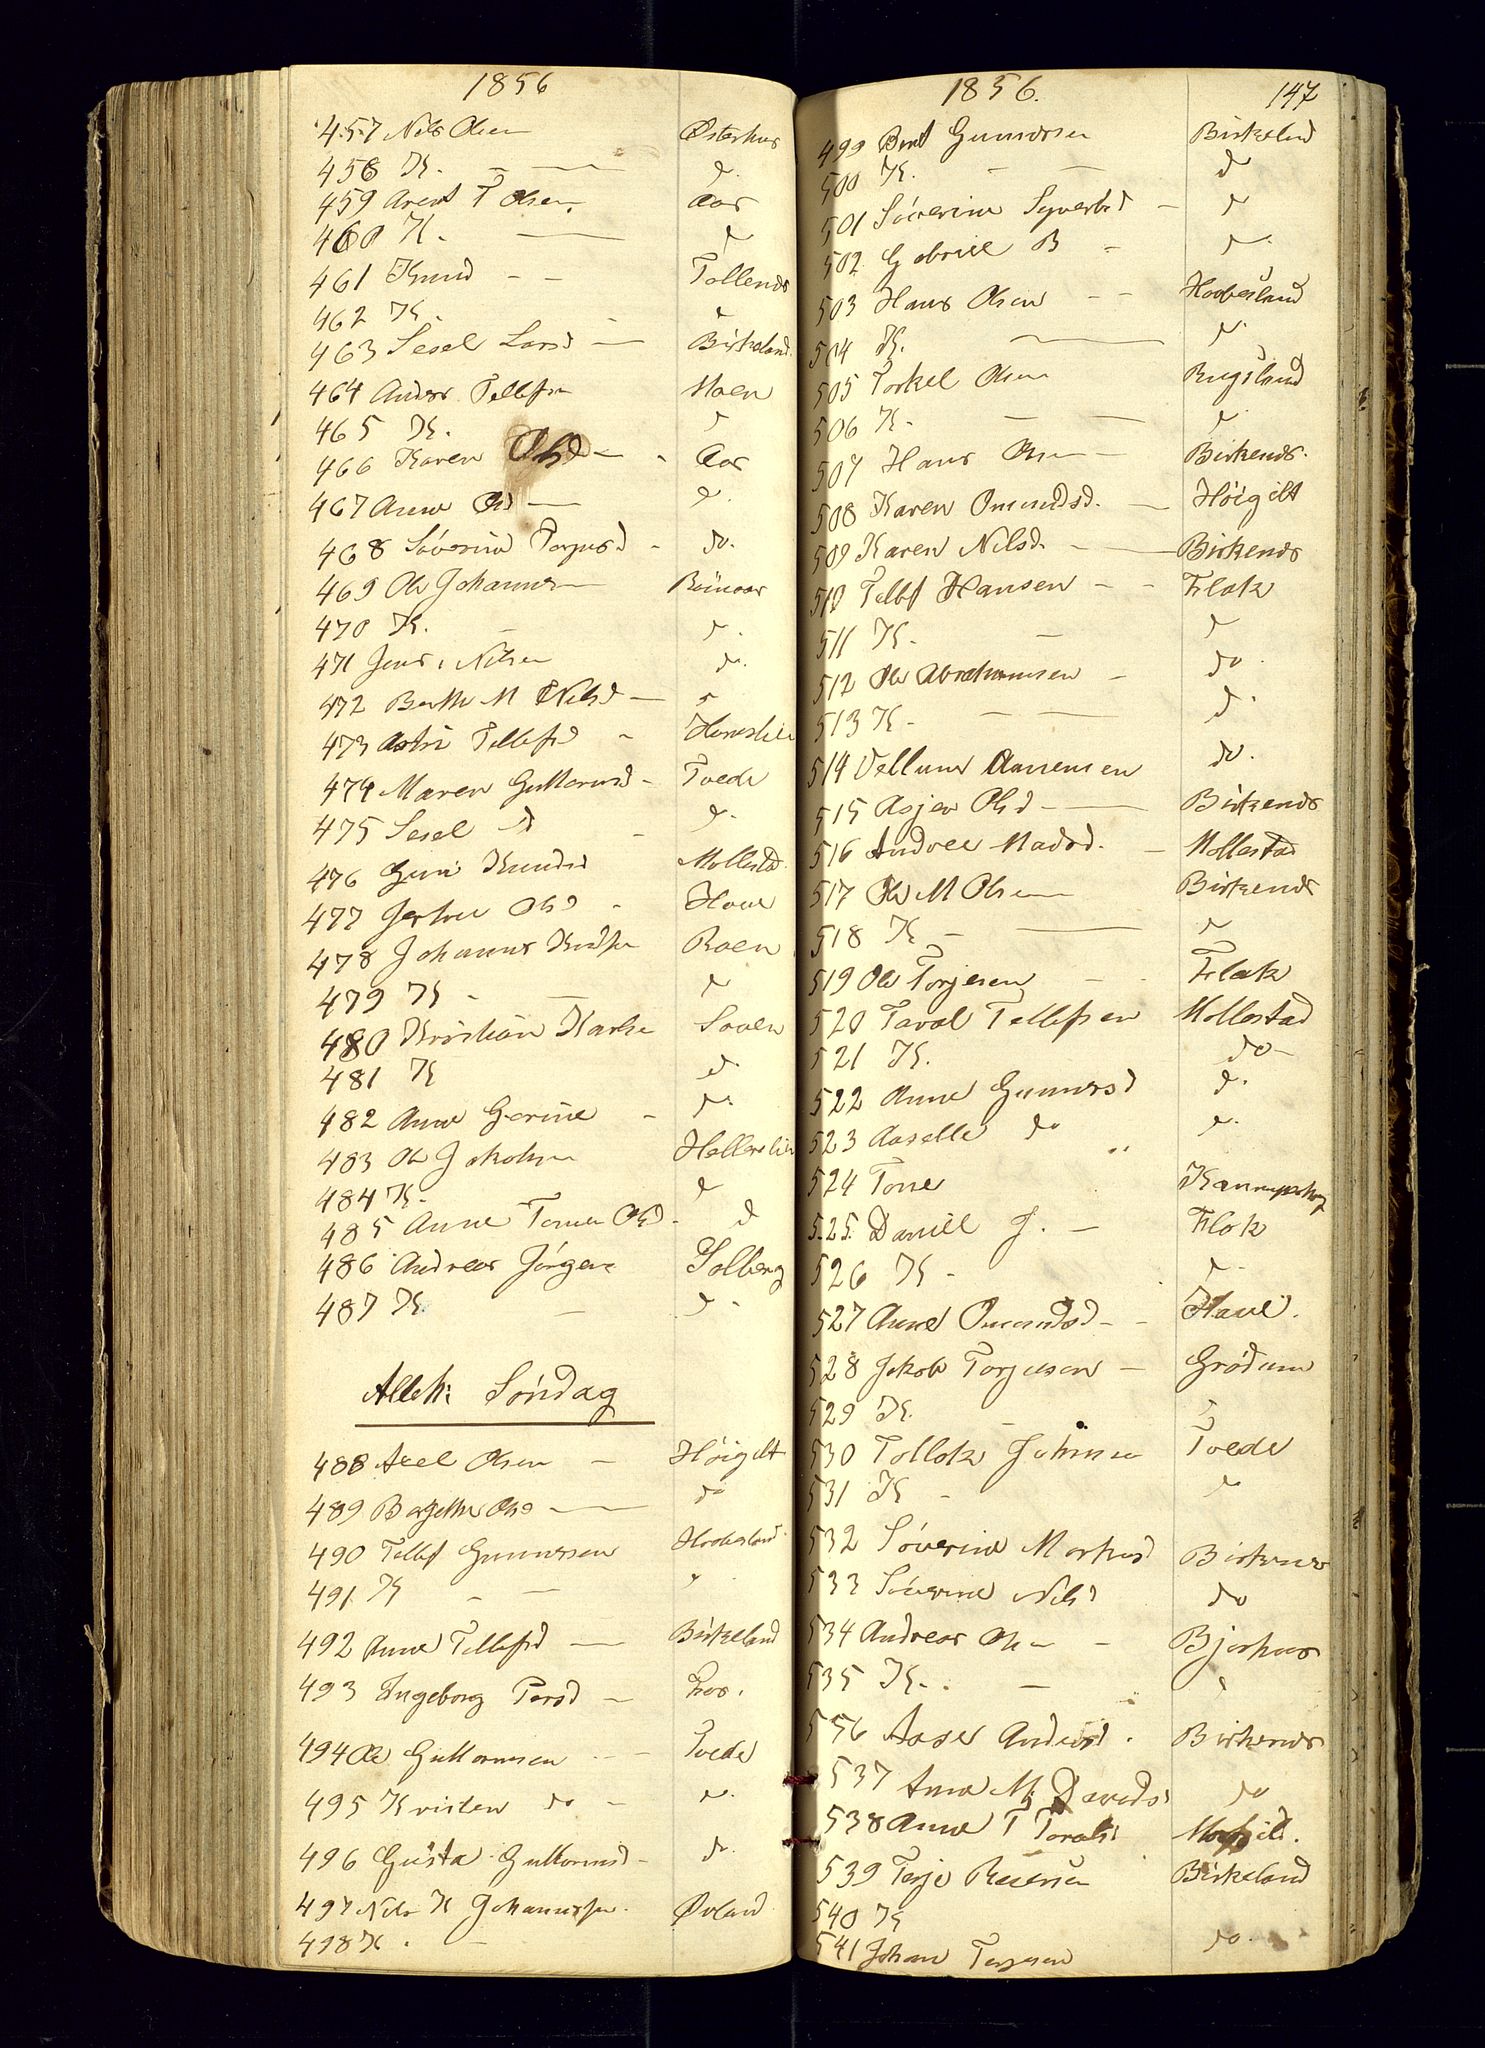 1856
457 Nils Olsen Østerhus
458 K. d.
459 Arent T Olsen Aas
460 K. d
461 Knud Tollends
462 K. d
463 Sesel Larsd Birkeland.
464 Anders Tellefsen Moen
465 K. d
466 Karen Olsd Aas
467 Anne Olsd d.
468 Søverine Torjusd do.
469 Ole Johannes
470 K. d.
471 Jens Nilsen do.
472 Berthe M Nilsd d
473 Astri Tellefsd
474 Maren Guttormsd Tvede
475 Sesel d d.
476 Guri Knudsd Mollestad
477 Jertru Olsd Have
478 Johannes Knudsen Roen
479 K. d
480 Kristian Karlsen
481 K d.
482 Anne Gorine do.
483 Ole Jakobsen
484 K. d
485 Anne Tomine Olsd d
486 Andreas Jørgens Solberg
487 K. d.
Alleh: Søndag
488 Axel Olsen Høigilt
489 Borgethe Olsd do
490 Tellef Gunnersen Hodnesland
491 K d
492 Anne Tellefsd Birkeland
493 Ingeborg Torsd
494 Ole Guttormsen Tvede
495 Kristen do do.
496 Gusta Guttormsd do.
497 Nils K Johannesen. Øvland
498 K.
1856. 147
499 Bent Gunnersen Birkelnd
500 K. d
501 Søverine Syverts d
502 Gabriel B d.
503 Hans Olsen Hodnesland
504 K. d.
505 Torkel Olsen Rugsland
506 K. d.
507 Hans Olsen Birkends.
508 Karen Omundsd. Høigilt
509 Karen Nilsd. Birkends
510 Tellef Hansen Flak
511 K. d
512 Ole Abrahamsen do.
513 K. d.
514 Vellum Aanensen do.
515 Asjer Olsd Birkends
516 Andrea Madsd. Mollestad
517 Ole M Olsen Birkends
518 K d
519 Ole Torjesen Flak
520 Taral Tellefsen Mollestad
521 K. do
522 Anne Gunnersd d.
523 Aaselle do d.
524 Tone
525. Daniel J. Flak
526 K. d.
527 Anne Omundsd Have.
528 Jakob Torjusen Grødum
529 K. d
530 Tollak Johnsen Tvede
531 K d
532 Søverine Markusd Birkenes
533 Søverine Nilsd do
534 Andreas Olsen Bjorhus
535 K. d
556 Aase Andersd. Birkends
537 Anne M. Davids do
538 Anne T Taralsd
539 Terje Birkeland
540 K
541 Johan Terjesen do.